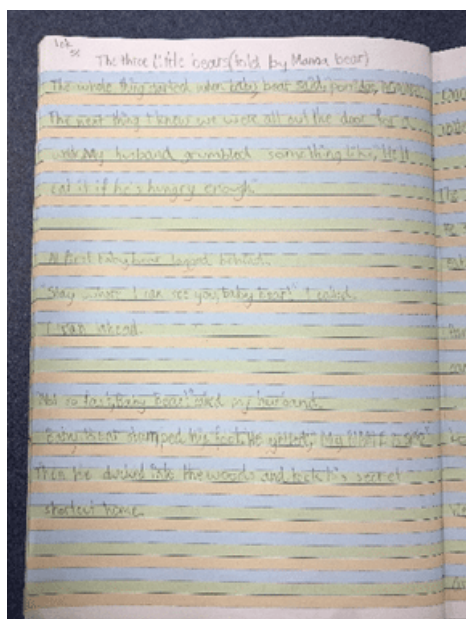 The three little bears (told by Mama bear)
The whole thing started when baby bear said, porridge,
The next thing I knew we were all out the door for a
walk. My husband grumbled something like, He'll
eat it if he's hungry enough."
At first baby bear lagged behind.
"Stay where I can see you, baby bear!" I called.
I ran ahead.
Not so fast, Baby Bear!" my husband.
Baby Bear stomped his foot. He yelled,
Then he ducked into the woods and took his secret
shortcut home.